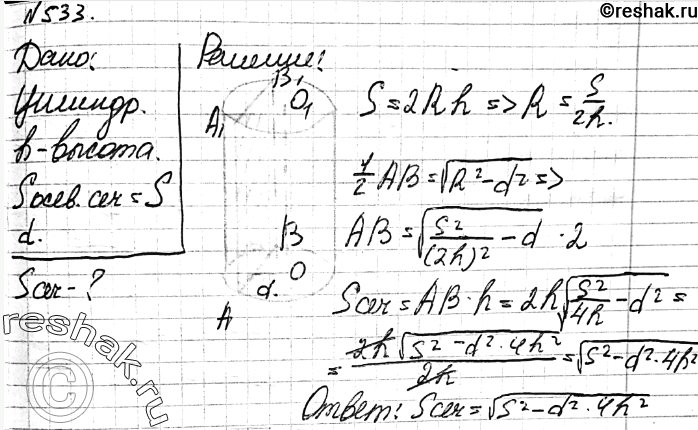 ©reshak.ru
№533.
Дано:
Цилиндр.
h-высота.
Sосев.сеч=S
d.
Sсеч-?
Решение:
B₁
O₁
A₁
B
O
d.
A
S=2Rh=>R=S/2h.
1/2 AB=√(R²-d²)=>
AB=√(S²/(2h)²-d)·2
Sсеч=AB·h=2h√(S²/4h-d²)=
=2h√(S²-d²·4h²)/2h=√(S²-d²·4h²)
Ответ: Sсеч=√(S²-d²·4h²)
reshak.ru
©